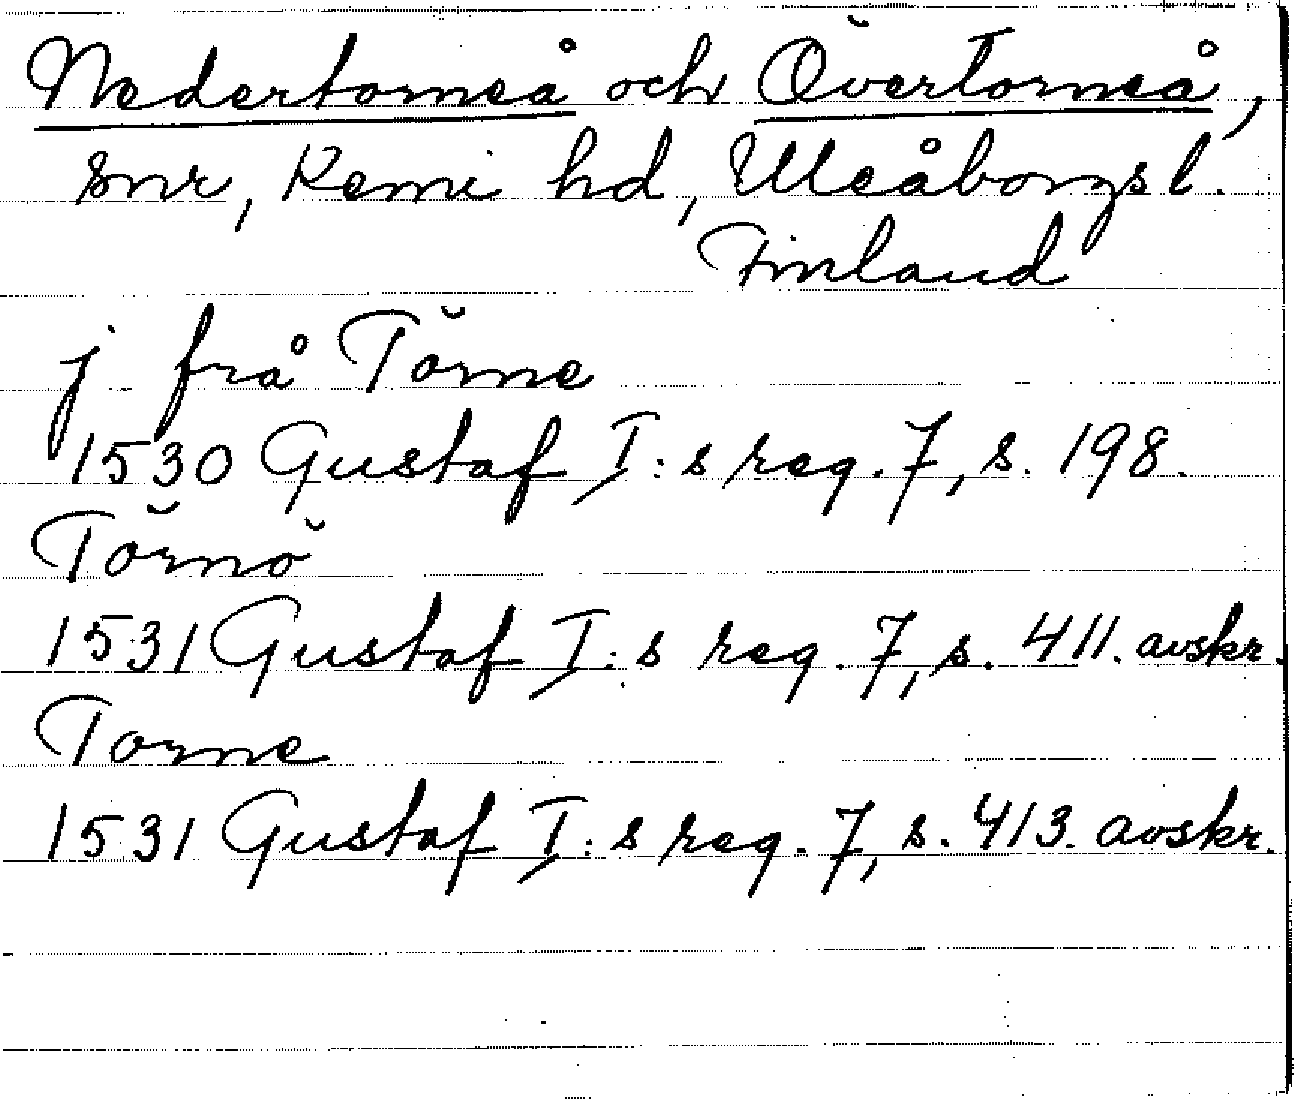 Nedertorneå och Övertorneå,
snr, Kemi hd, Uleåborgs l.
Finland
j frå Törne
1530 Gustaf I:s reg. 7, s. 198.
Törnö
1531 Gustaf I:s reg. 7, s. 411. avskr.
Torne
1531 Gustaf I:s reg. 7, s. 413. avskr.